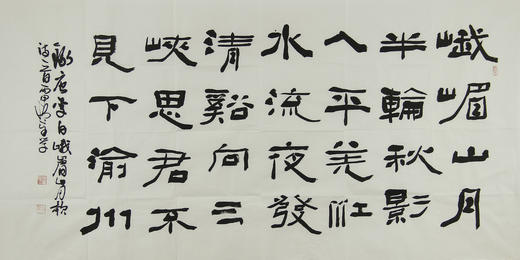 峨嵋山月
半輪秋影
入平羌江
水流夜發
清谿向三
峽思君不
見下渝州
錄唐李白峨眉山月歌
詩一首